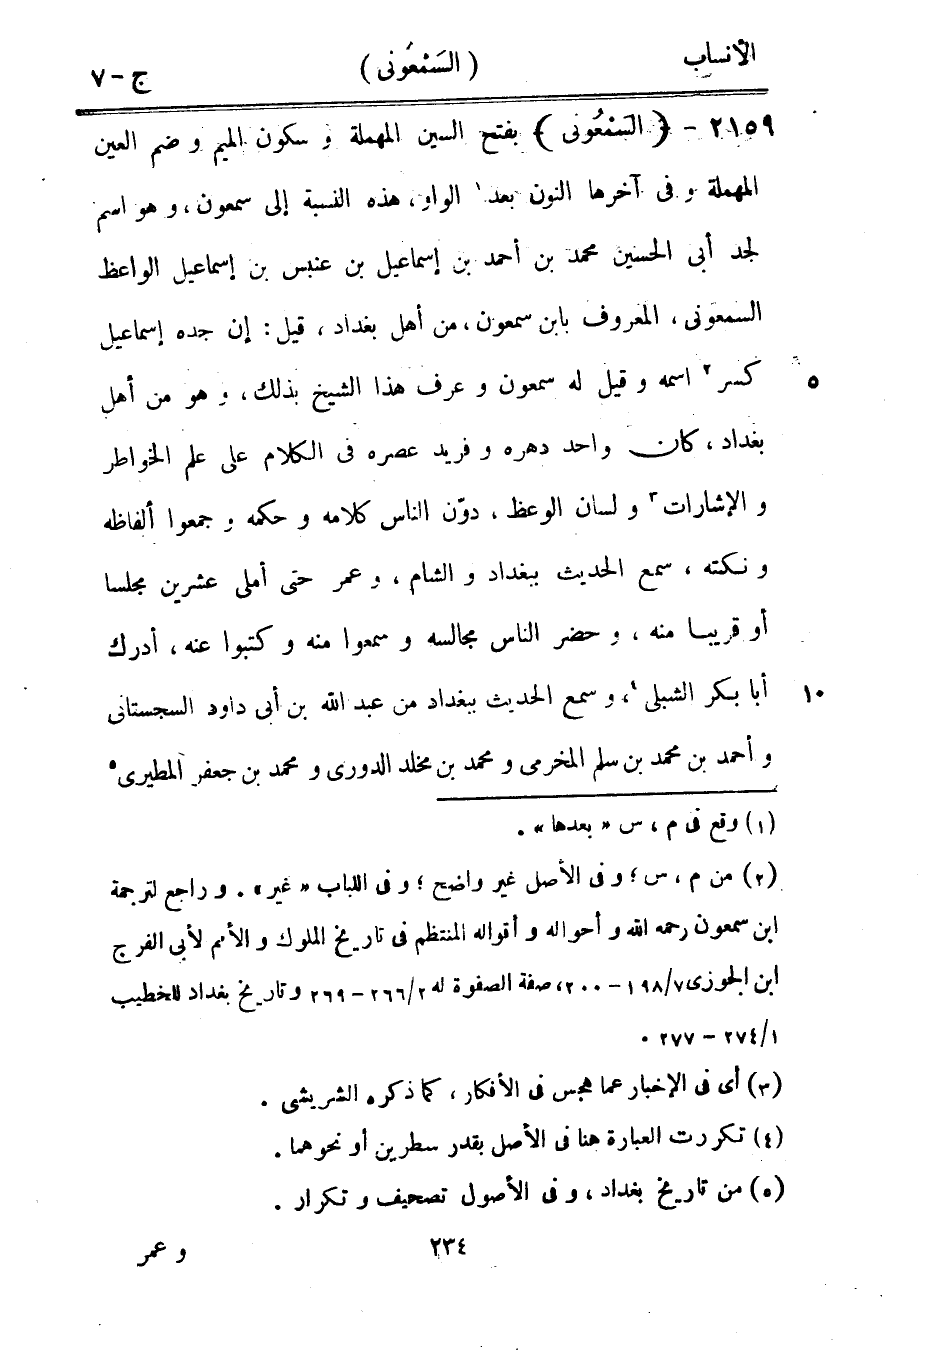 الأنساب ( السَمْعُونى ) ج - ٧
٢١٥٩ - ﴿ السَمْعُونى ﴾ بفتح السين المهملة و سكون الميم و ضم العين
المهملة و فى آخرها النون بعد١ الواو، هذه النسبة إلى سمعون، و هو اسم
لجد أبى الحسين محمد بن أحمد بن إسماعيل بن عنبس بن إسماعيل الواعظ
السمعونى ، المعروف بابن سمعون، من أهل بغداد ، قيل : إن جده إسماعيل
كسر٢ اسمه و قيل له سمعون و عرف هذا الشيخ بذلك ، و هو من أهل ٥
بغداد ، كان واحد دهره و فريد عصره فى الكلام على علم الخواطر
و الإشارات٣ و لسان الوعظ ، دوّن الناس كلامه و حكمه و جمعوا ألفاظه
و نكته ، سمع الحديث ببغداد و الشام ، و عمر حتى أملى عشرين مجلسا
أو قريبا منه ، و حضر الناس مجالسه و سمعوا منه و كتبوا عنه ، أدرك
أبا بكر الشبلى٤، و سمع الحديث ببغداد من عبد الله بن أبى داود السجستانى ١٠
و أحمد بن محمد بن سلم المخرمى و محمد بن مخلد الدورى و محمد بن جعفر المطيرى٥
(١) وقع فى م ، س « بعدها » .
(٢) من م ، س ؛ و فى الأصل غير واضح ؛ و فى اللباب « غير » . و راجع لترجمة
ابن سمعون رحمه الله و أحواله و أقواله المنتظم فى تاريخ الملوك و الأمم لأبى الفرج
ابن الجوزى ٧/ ١٩٨ - ٢٠٠، صفة الصفوة له ٢/ ٢٦٦ - ٢٦٩ و تاريخ بغداد للخطيب
١/ ٢٧٤ - ٢٧٧ .
(٣) أى فى الإخبار عما هجس فى الأفكار ، كما ذكره الشريشى .
(٤) تكررت العبارة هنا فى الأصل بقدر سطرين أو نحوهما .
(٥) من تاريخ بغداد ، و فى الأصول تصحيف و تكرار .
٢٣٤ و عمر